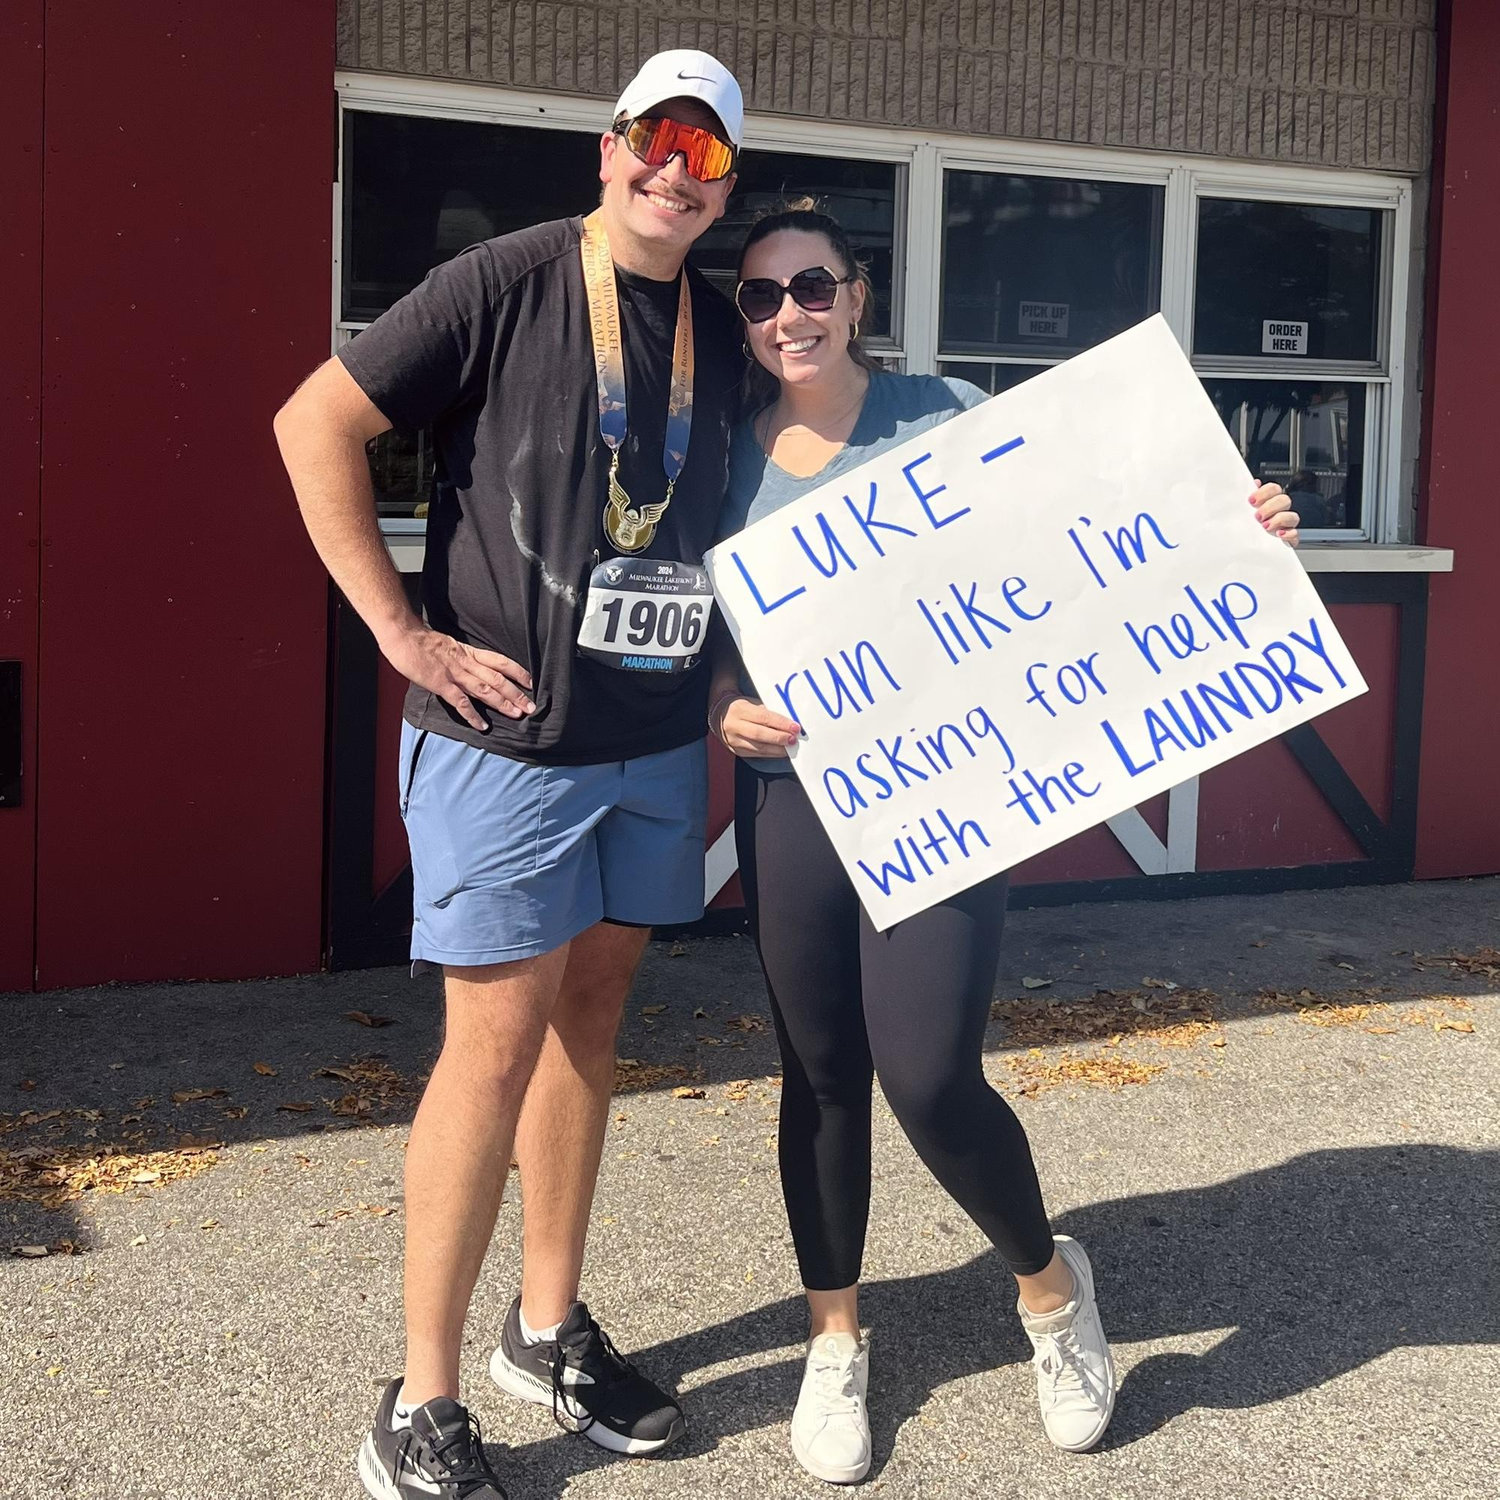 PICK UP
HERE
ORDER
HERE
2024 MILWAUKEE
LAKEFRONT MARATHON
FOR RUNNERS, BY
2024
MILWAUKEE LAKEFRONT
MARATHON
1906
MARATHON
LUKE –
run like I'm
asking for help
with the LAUNDRY